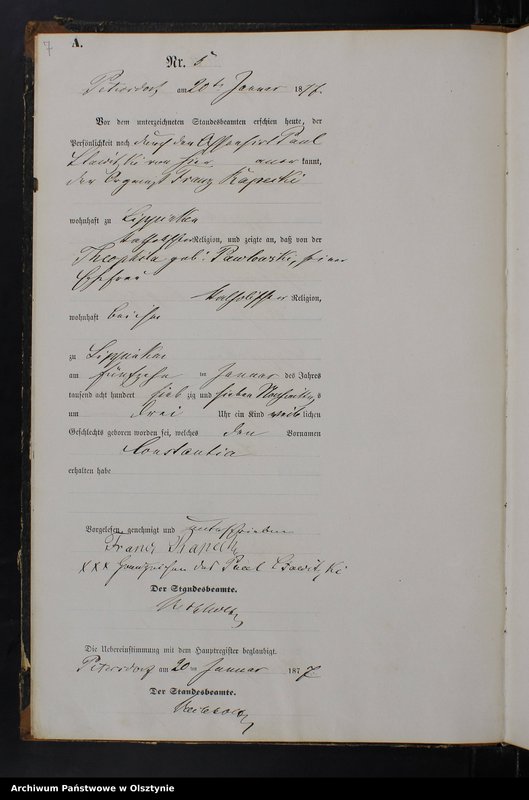 7
A.
Nr. 5
Petersdorf am 20ten Januar 1877.
Vor dem unterzeichneten Standesbeamten erschien heute, der
Persönlichkeit nach durch den Paul
von hier anerkannt,
der Franz Kapecki
wohnhaft zu Lippinken
katholischer Religion, und zeigte an, daß von der
Theophila geb. Pawlowski, seiner
Ehefrau
katholischer Religion,
wohnhaft bei ihm
zu Lippinken
am fünfzehn ten Januar des Jahres
tausend acht hundert siebzig und sieben Nachmittags
um drei Uhr ein Kind weiblichen
Geschlechts geboren worden sei, welches den Vornamen
Constantia
erhalten habe
Vorgelesen, genehmigt und unterschrieben
Franz Kapecki
XXX Handzeichen des Paul
Der Standesbeamte.
Die Uebereinstimmung mit dem Hauptregister beglaubigt.
Petersdorf am 20 ten Januar 1877.
Der Standesbeamte.
Archiwum Państwowe w Olsztynie